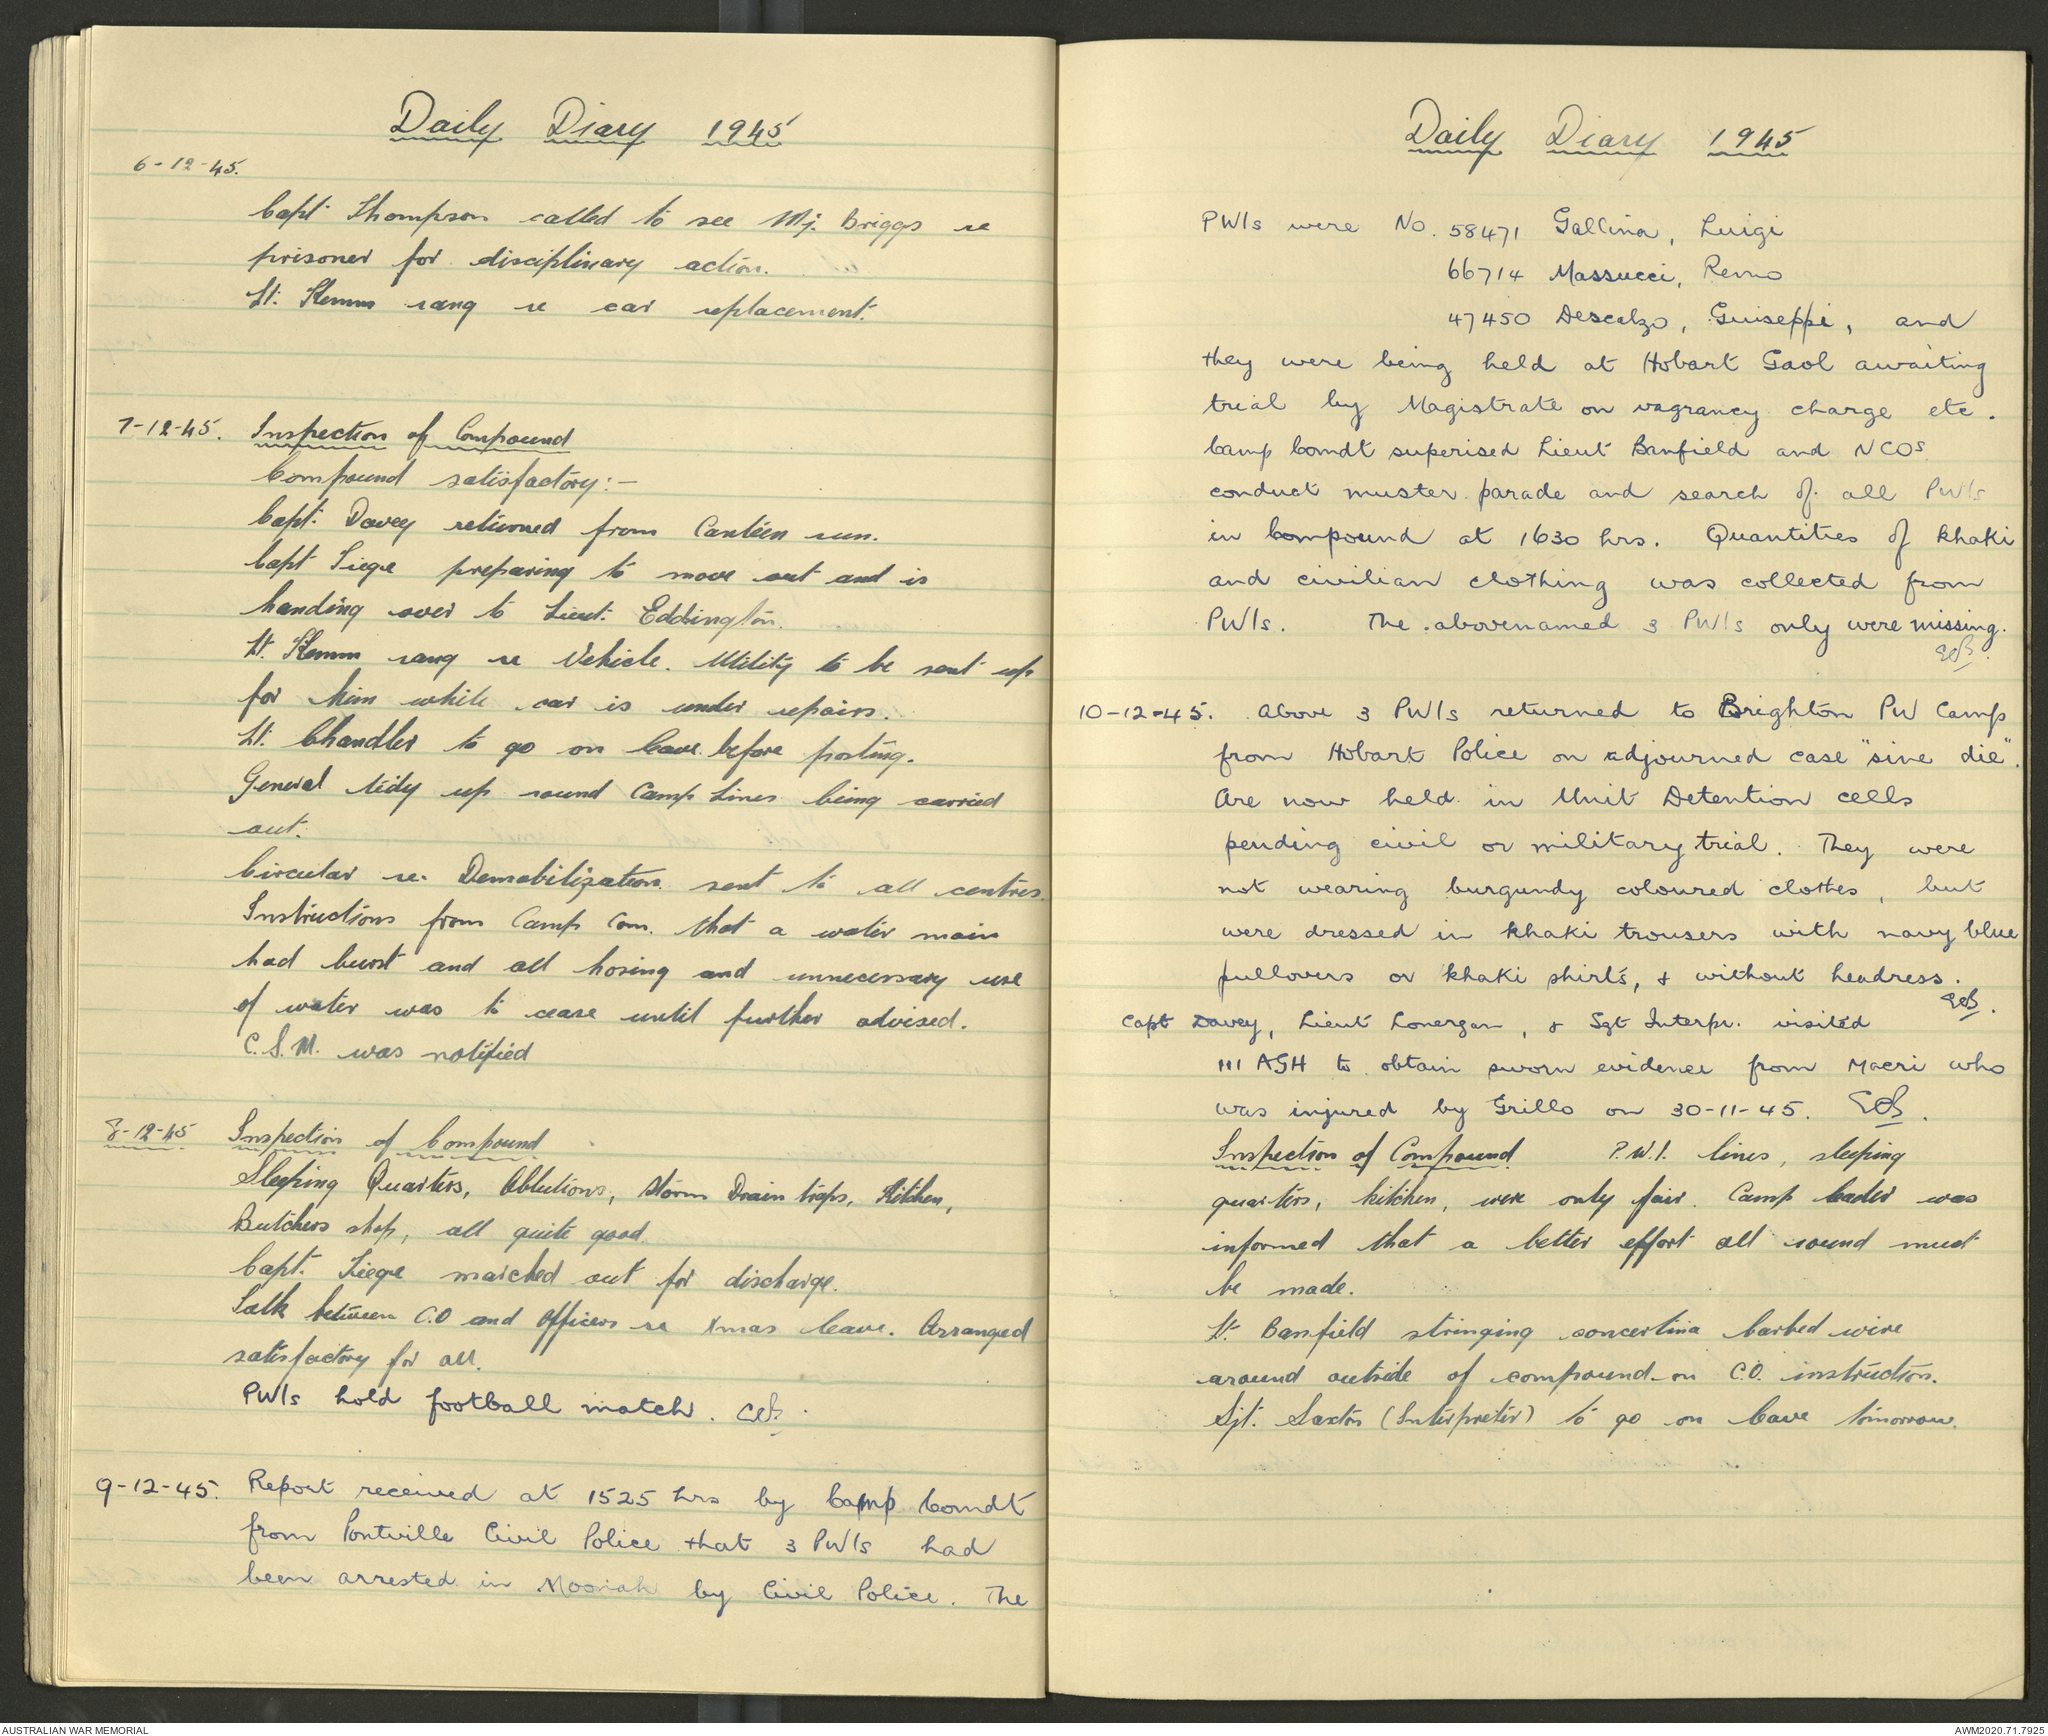 Daily Diary 1945
6-12-45.
Capt Thompson called to see Mj. Briggs re
prisoner for disciplinary action.
Lt. Klemm rang re car replacement.
7-12-45. Inspection of Compound
Compound satisfactory:-
Capt. Davey returned from Canteen run.
Capt Liege preparing to move out and is
handing over to Lieut. Eddington.
Lt. Klemm rang re Vehicle. Utility to be sent up
for him while car is under repairs.
Lt. Chandler to go on leave before posting.
General tidy up round Camp Lines being carried
out.
Circular re. Demobilization sent to all centres.
Instructions from Camp Com. that a water main
had burst and all hosing and unnecessary use
of water was to cease until further advised.
C.S.M. was notified
8-12-45 Inspection of Compound
Sleeping Quarters, Ablutions, Storm Drain traps, Kitchen,
Butchers shop, all quite good.
Capt. Liege marched out for discharge.
Talk between C.O and Officers re Xmas leave. Arranged
satisfactory for all.
PWIs hold football match.
9-12-45. Report received at 1525 hrs by Camp Comdt
from Pontville Civil Police that 3 PWIs had
been arrested in Moonah by Civil Police. The
Daily Diary 1945
PWIs were No. 58471 Gallina, Luigi
66714 Massucci, Remo
47450 Descalzo, Guiseppi, and
they were being held at Hobart Gaol awaiting
trial by Magistrate on vagrancy charge etc.
Camp Comdt superised Lieut Banfield and NCOs
conduct muster parade and search of all PWIs
in Compound at 1630 hrs. Quantities of khaki
and civilian clothing was collected from
PWIs. The abovenamed 3 PWIs only were missing.
10-12-45. Above 3 PWIs returned to Brighton PW Camp
from Hobart Police on adjourned case "sine die".
Are now held in Unit Detention cells
pending civil or military trial. They were
not wearing burgundy coloured clothes, but
were dressed in khaki trousers with navy blue
pullovers or khaki shirts, & without headress.
Capt Davey, Lieut Lonergan, & Sgt Interpr. visited
111 AGH to obtain sworn evidence from Macri who
was injured by Grillo on 30-11-45.
Inspection of Compound P.W.I. lines, sleeping
quarters, kitchen, were only fair. Camp leader was
informed that a better effort all round must
be made.
Lt. Banfield stringing concertina barbed wire
around outside of compound on C.O. instruction.
Sjt. Saxton (Interpreter) to go on leave tomorrow.
AUSTRALIAN WAR MEMORIAL
AWM2020.71.7925